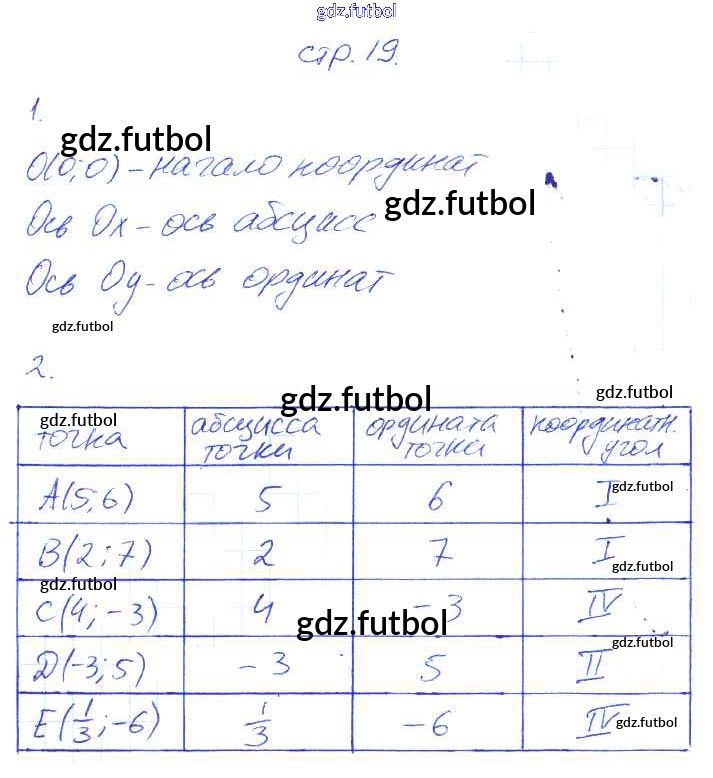 gdz.futbol
стр. 19.
1.
gdz.futbol
O(0;0) – начало координат
gdz.futbol
Ось Ox – ось абсцисс
Ось Oy – ось ординат
gdz.futbol
2.
gdz.futbol
gdz.futbol
gdz.futbol
точка абсцисса точки ордината точки координатн. угол
A(5;6) 5 6 I gdz.futbol
B(2;7) 2 7 I gdz.futbol
gdz.futbol
C(4;-3) 4 -3 IV
gdz.futbol
gdz.futbol
D(-3;5) -3 5 II
E(1/3;-6) 1/3 -6 IV gdz.futbol